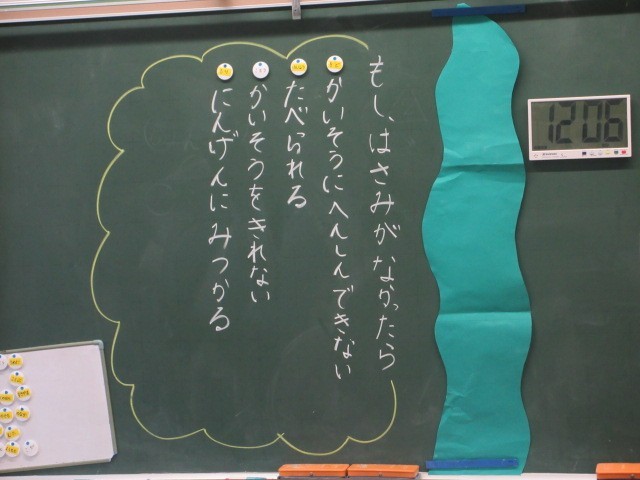 もし、はさみがなかったら
かいそうにへんしんできない
たべられる
かいそうをきれない
にんげんにみつかる
12:06